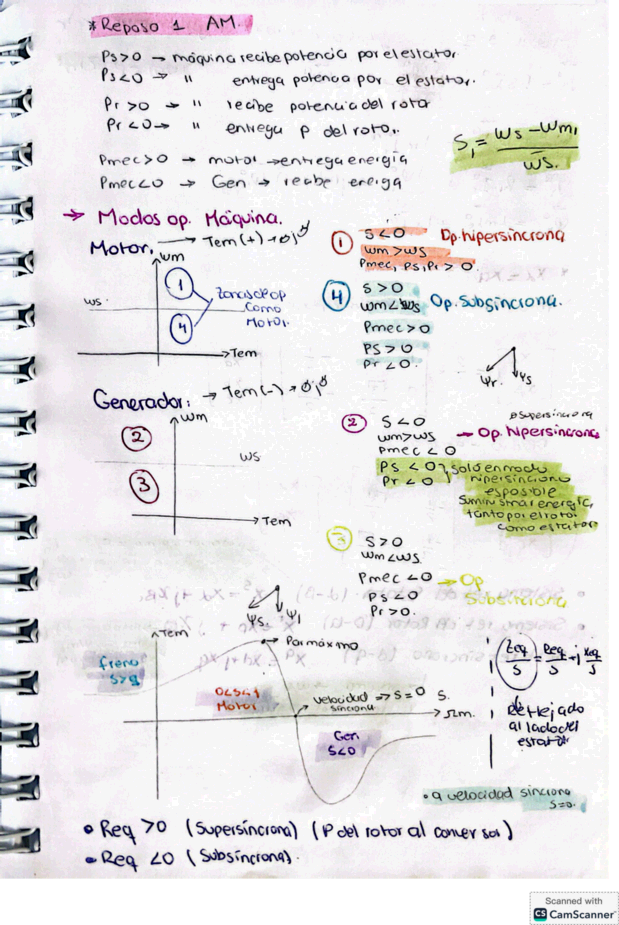 * Repaso 1 AM.
Ps>0 → máquina recibe potencia por el estator.
Ps<0 → " entrega potencia por el estator.
Pr >0 → " recibe potencia del rotor
Pr <0 → " entrega p del rotor.
S1 = ws - wm1 / ws.
Pmec>0 → motor → entrega energía
Pmec<0 → Gen → recibe energía
→ Modos op. Máquina.
Motor. → Tem (+)
wm
ws.
1
4
Zonas de op como Motor.
Tem
1 S<0 Op. hipersíncrona
wm>ws
Pmec, Ps, Pr > 0
4 S>0
wm<ws Op. Subsíncrona.
Pmec>0
Ps >0
Pr <0.
Ψr. Ψs
Generador: → Tem (-)
wm
2
3
ws
Tem
2 S<0
supersincrona
wm>ws → Op. hipersíncrona
Pmec <0
Ps <0 , solo en modo
Pr <0 hipersincrono
es posible
suministrar energía,
tanto por el rotor
como estator
3 S>0
wm<ws.
Pmec <0 → Op
Subsíncrona
Ps<0
Pr>0.
Ψs. Ψ1
Tem
Par máximo
freno
0<S<1
Motor
velocidad síncrona → S=0 S.
Ωm.
Gen
S<0
Zeq / S = Req / S + j Xeq / S
Reflejado
al lado del
estator
• a velocidad síncrona
S=0.
• Req >0 (Supersíncrona) (P del rotor al conversor)
• Req <0 (Subsíncrona).
Scanned with
CS CamScanner